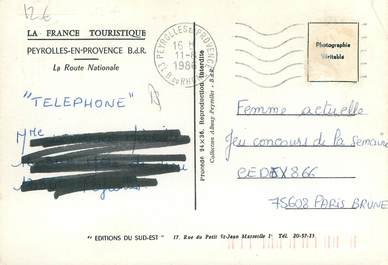 12 €
LA FRANCE TOURISTIQUE
PEYROLLES-EN-PROVENCE B.d.R.
La Route Nationale
"TELEPHONE"
Mme
PEYROLLES EN PROVENCE
16 H
11-8
1986
B. DU RH
13
Procédé 24×36. Reproduction interdite
Collection Albouy Peyrolles - B.d.R.
Photographie
Véritable
Femme actuelle
Jeu concours de la semaine
CEDEX 866
75608 PARIS BRUNE
"EDITIONS DU SUD-EST" 17, Rue du Petit St-Jean Marseille 1er Tél. 20-57-15